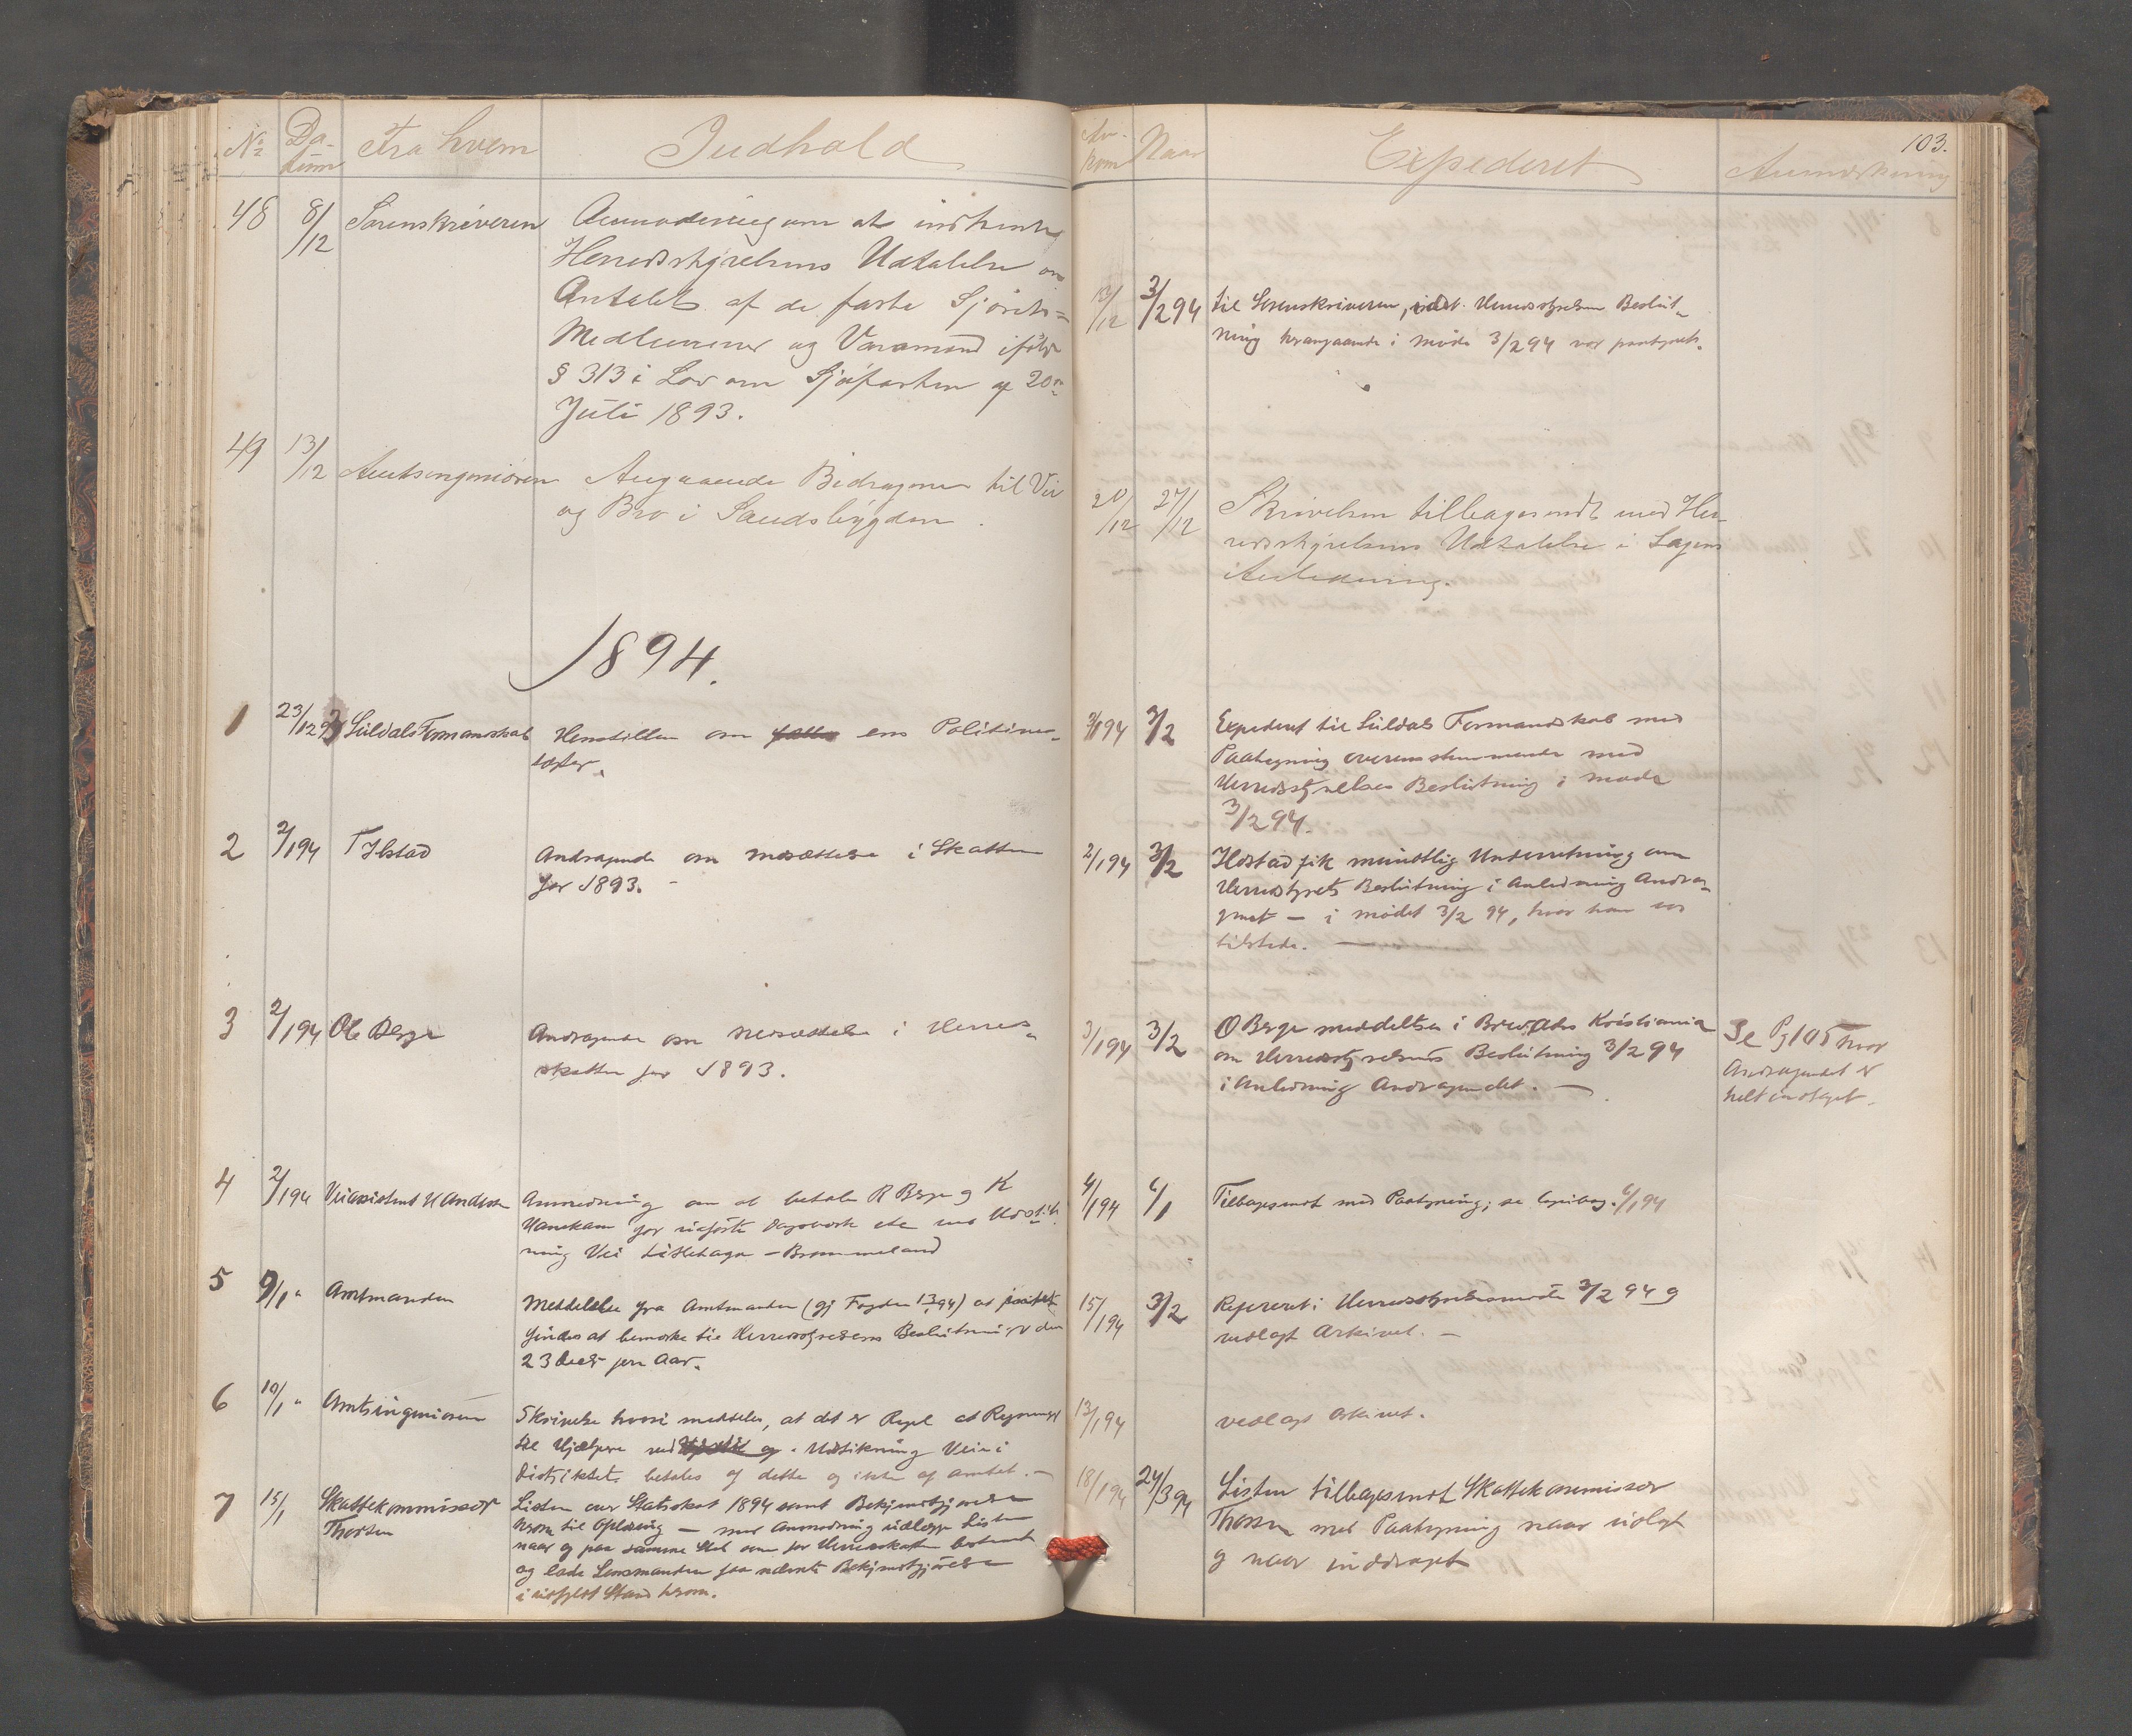 No Datum Fra hvem Indhold
48 8/12 Sorenskriveren Anmodning om at indhente
Herredsstyrelsens Udtalelse om
Antallet af de faste Sjørets=
Medlemmer og Varamænd ifølge
§ 313 i Lov om Sjøfarten af 20de
Juli 1893.
49 13/12 Amtsingeniøren Angaaende Bidragene til Vei
og Bro i Sandsbygden.
1894.
1 23/12 93 Suldals Formandskab Henstillen om en Politimester.
2 2/1 94 T Ilstad Andragende om nedsættelse i Skatten
for 1893. -
3 2/1 94 Ole Berge Andragende om nedsættelse i Herreds=
skatten for 1893.
4 2/1 94 Veiassistent Anmodning om at betale R Berge og K
for udførte Dagsværk etc ved Udstik-
ning Vei Litlehaga - Brommeland
5 9/1 " Amtmanden Meddelelse fra Amtmanden (gj Fogden 13/1 94) at intet
findes at bemærke til Herredsstyrelsens Beslutninger den
23 Decbr forr. Aar.
6 10/1 " Amtsingeniøren Skrivelse hvori meddeles, at det er Regel at Regninger
til Hjælpere ved Udstikning Veie i
Distriktet betales af dette og ikke af Amtet. -
7 15/1 Skattekommissær Listen over Statsskat 1894 samt Bekjendtgjørelse
Thorsen herom til Oplæsning - med Anmodning udlægge Listen
naar og paa samme Sted som for Herredsskatten bestemt
og lade Lensmanden faa nævnte Bekjendtgjørelse
i udfyldt Stand herom.
103.
Ankom Naar Expederet Anmærkning
13/12 3/2 94 til Sorenskriveren, Herredsstyrelsens Beslut-
ning herangaaende i møde 3/2 94 var paategnet.
20/12 27/12 Skrivelsen tilbagesendt med Her-
redsstyrelsens Udtalelse i Sagens
Anledning.
3/1 94 3/2 Expederet til Suldals Formandskab med
Paategning overensstemmende med
Herredsstyrelsens Beslutning i møde
3/2 94.
2/1 94 3/2 Ilstad fik mundtlig Underretning om
Herredsstyrets Beslutning i Anledning Andra-
gendet - i mødet 3/2 94, hvor han var
tilstede. -
3/1 94 3/2 O Berge meddeltes i Brev Kristiania
om Herredsstyrelsens Beslutning 3/2 94
i Anledning Andragendet. -
Se Pg 105 hvor
Andragendet er
helt indtaget.
4/1 94 6/1 Tilbagesendt med Paategning; se Copibog. 6/1 94
15/1 94 3/2 Refereret i Herredsstyrelsesmøde 3/2 94 og
vedlagt Arkivet. -
13/1 94 vedlagt Arkivet.
18/1 94 24/3 94 Listen tilbagesendt Skattekommissær
Thorsen med Paategning naar udlagt
og naar inddraget